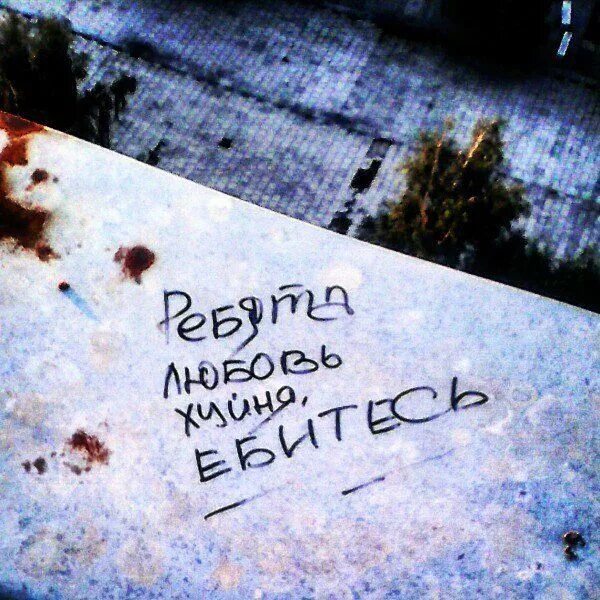 Ребята
любовь
хуйня,
ЕБИТЕСЬ